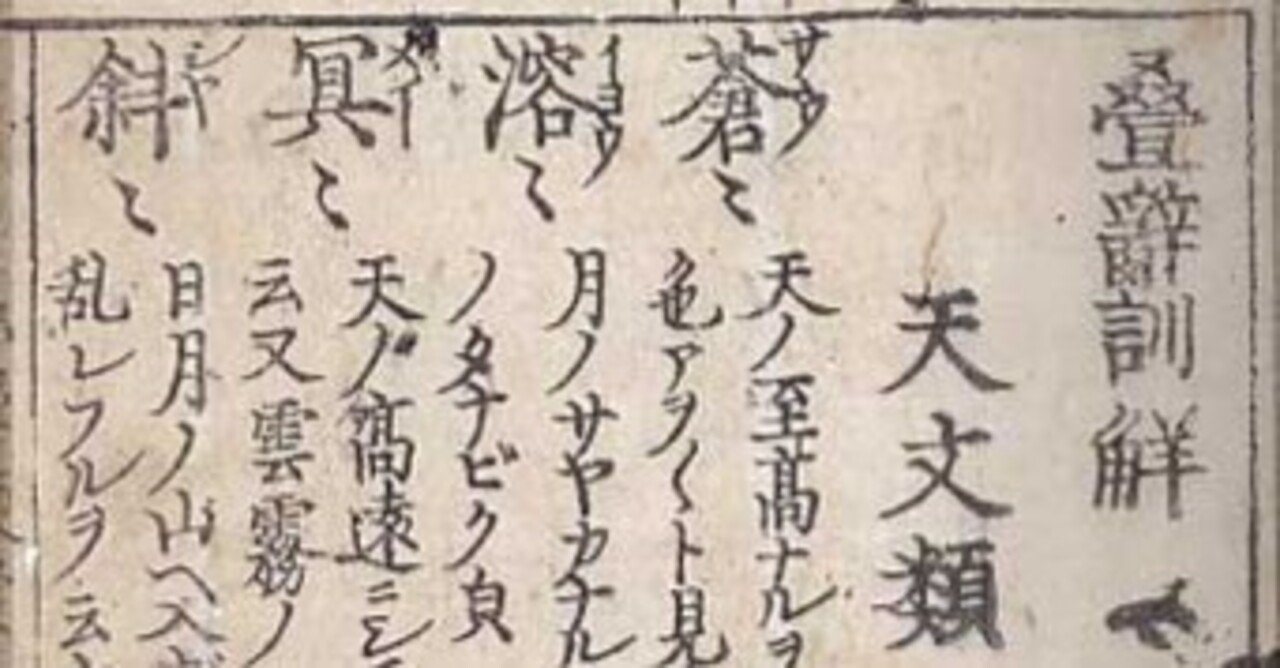 疊辭訓解
天文類
蒼〻 サウ
天ノ至高ナルヲ
色アヲ〱ト見
溶〻 イヨウ
月ノサヤカナル
ノタナビク皃
冥〻 メイ
天ノ高遠ニシ
云又雲霧ノ
斜〻 シヤ
日月ノ山ヘ入
乱レフルヲ云